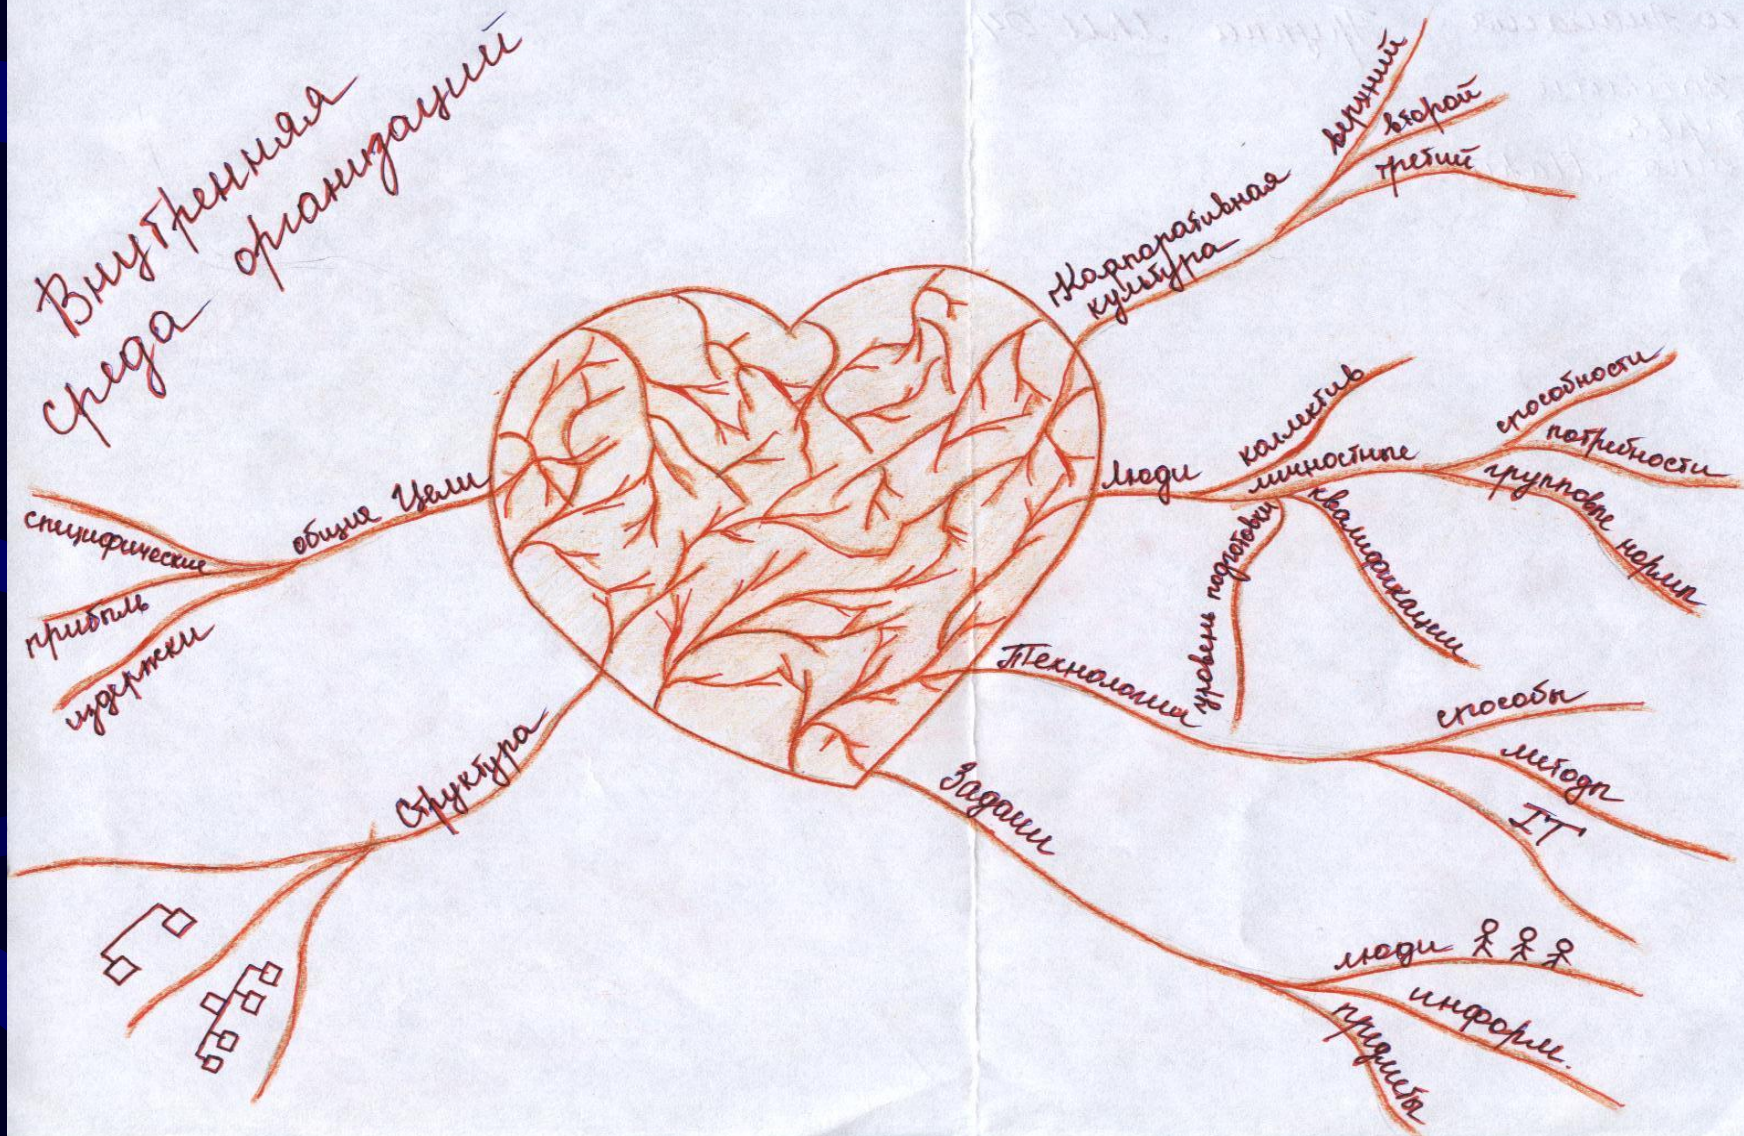 Внутренняя
среда организаций
Корпоративная
культура
верхний
второй
третий
Люди
коллектив
личностные
способности
потребности
групповые нормы
квалификации
уровень подготовки
Технологии
способы
методы
IT
Задачи
люди
информ.
предметы
Цели
общие
специфические
прибыль
издержки
Структура